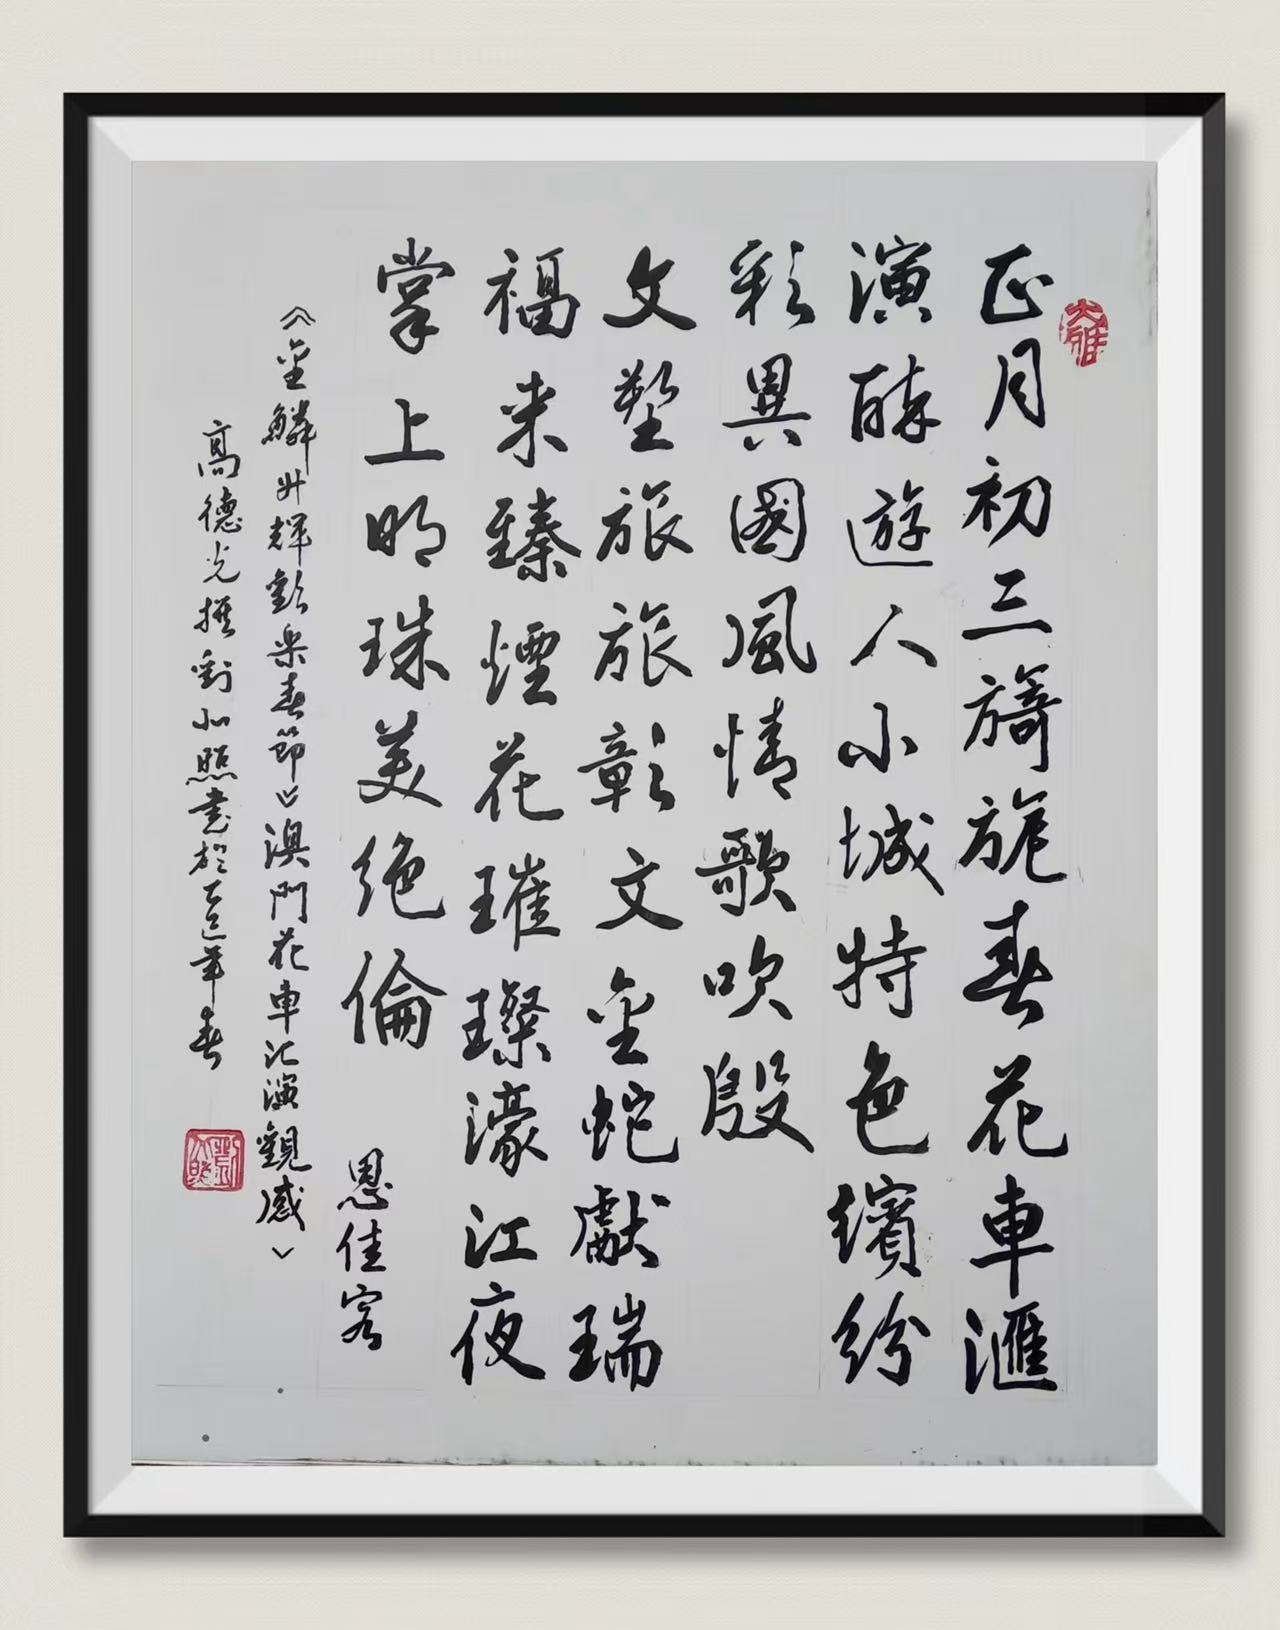 正月初三旖旎春花車滙
演醉遊人小城特色繽紛
彩異國風情歌吹殷
文塑旅旅彰文金蛇獻瑞
福来臻煙花璀璨濠江夜
掌上明珠美绝倫
恩佳客
《金鱗廾輝歡楽春節》澳門花車汇演觀感
高德光撰劉小照書於乙巳年春
大雅